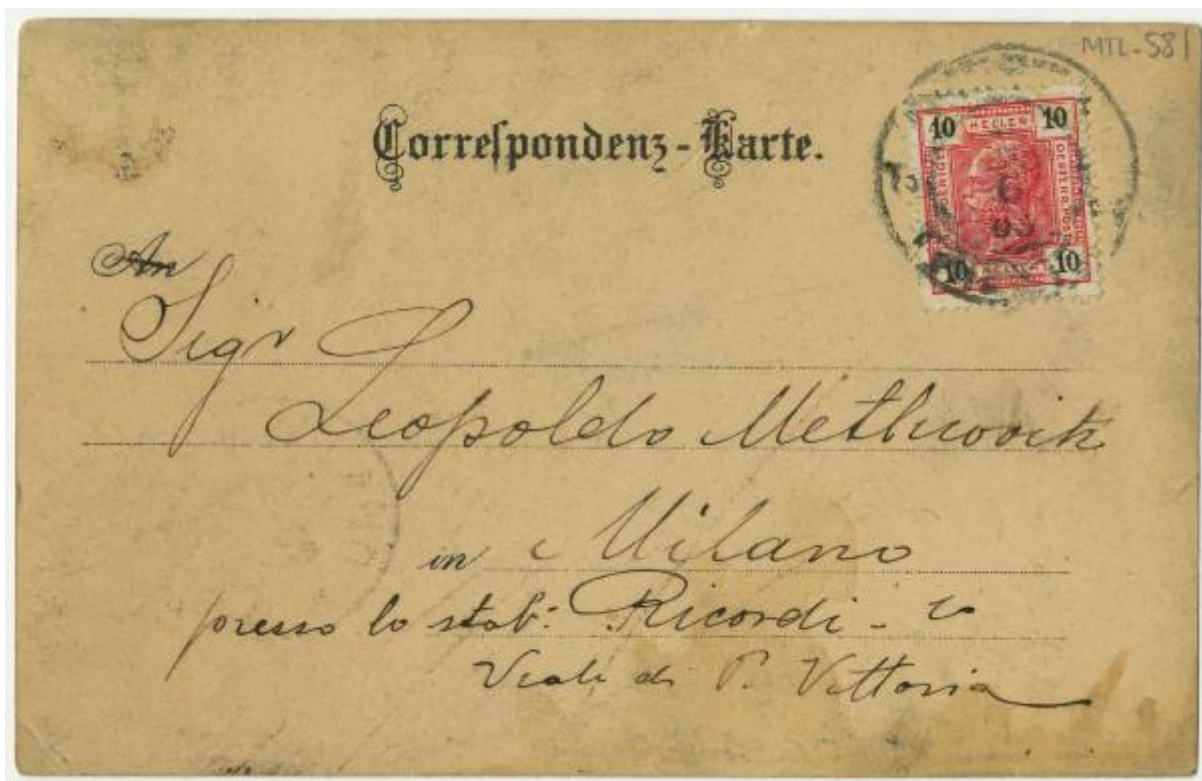 MTL-581
Correspondenz-Karte.
10 HELLER 10
10 HELLER 10
An
Sigr
Leopoldo Metlicovitz
in Milano
presso lo stab: Ricordi - C
Viale di P. Vittoria